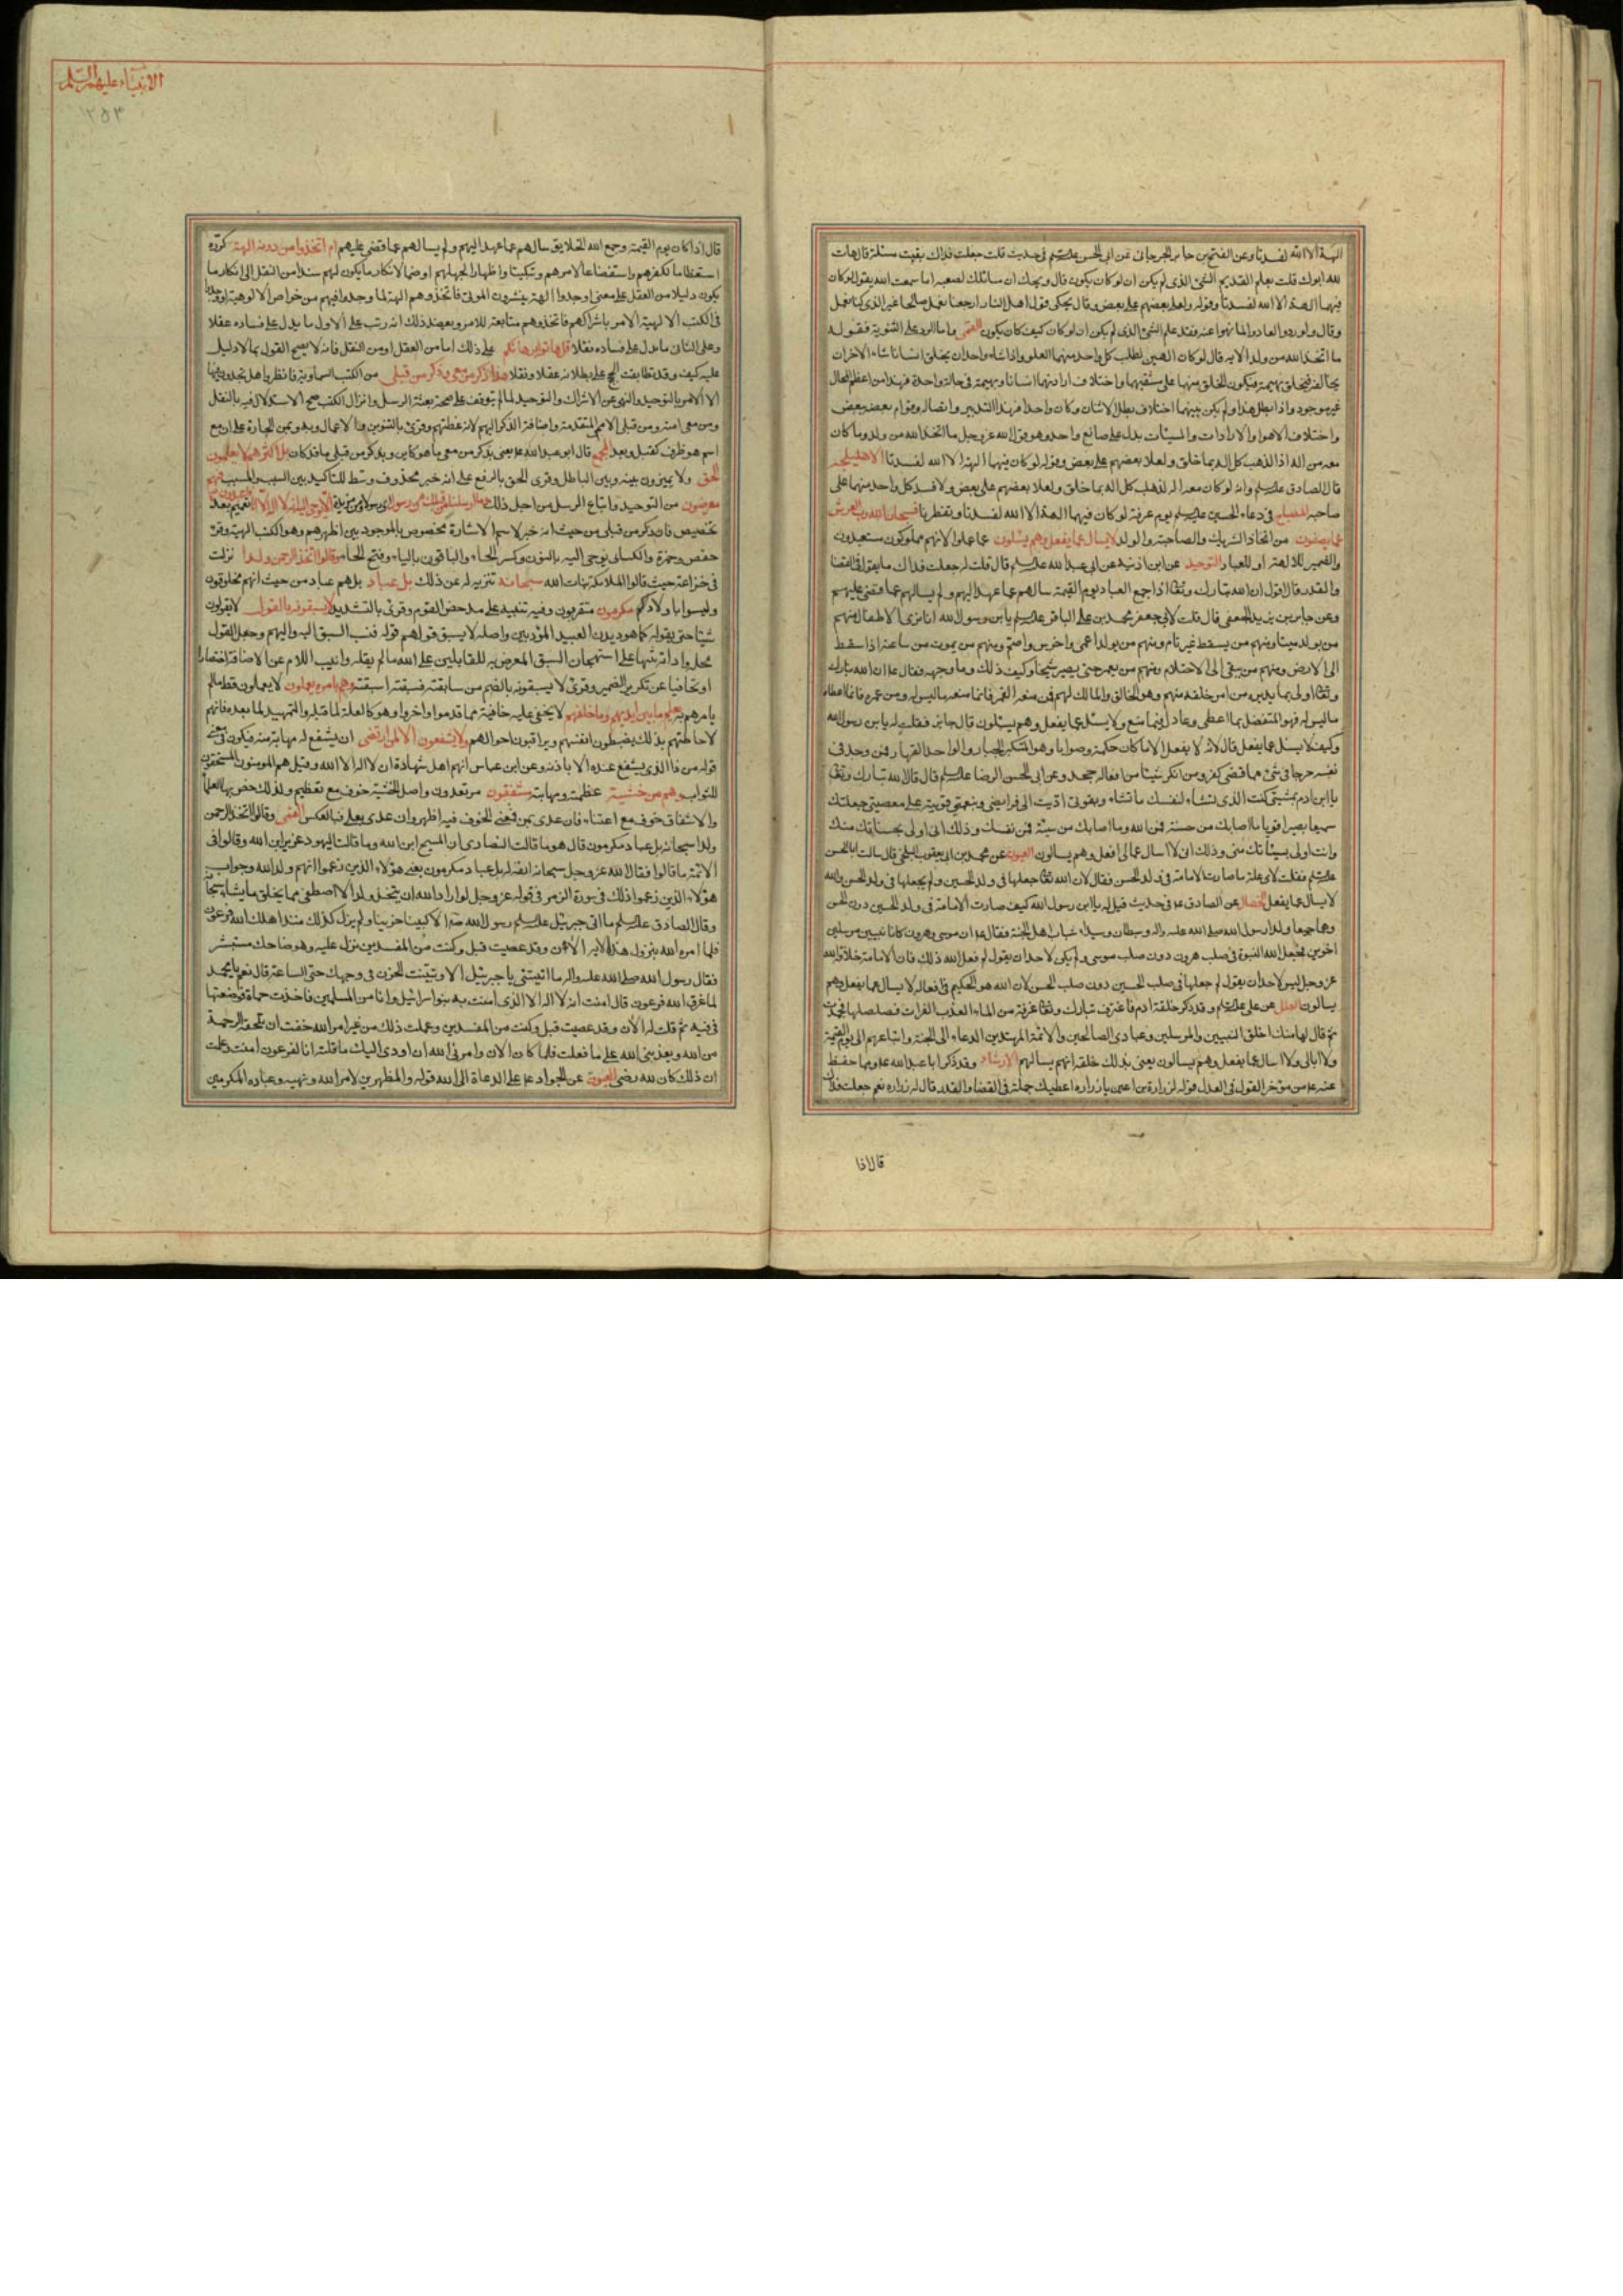 الهة الا الله لفسدتا وعن الفتح بن يزيد الجرجانى عن ابى الحسن عليه السلم فى حديث قلت جعلت فداك بقيت مسئلة قال هات
لله ابوك قلت يعلم القديم الشئ الذى لم يكن ان لو كان كيف كان يكون قال ويحك ان مسائلك لصعبه اما سمعت الله يقول لو كان
فيهما الهة الا الله لفسدتا وقوله ولعلا بعضهم على بعض وقال يحكى قول اهل النار ارجعنا نعمل صالحا غير الذى كنا نعمل
وقال ولو ردوا لعادوا لما نهوا عنه فقد علم الشئ الذى لم يكن ان لو كان كيف كان يكون القمى واما الرد على الثنوية فقوله
ما اتخذ الله من ولد الايه قال لو كان الهين لطلب كل واحد منهما العلو واذا شاء واحد ان يخلق انسانا شاء الاخر ان
يخالفه فيخلق بهيمة فيكون الخلق منهما على مشيتهما واختلاف ارادتهما انسانا وبهيمة فى حالة واحدة فهذا من اعظم المحال
غير موجود واذا بطل هذا ولم يكن بينهما اختلاف بطل الاثنان وكان واحدا فهذا التدبير واتصاله وقوام بعضه ببعض
واختلاف الاهوا والارادات والمشيات يدل على صانع واحد وهو قول الله عز وجل ما اتخذ الله من ولد وما كان
معه من اله اذا لذهب كل اله بما خلق ولعلا بعضهم على بعض وقوله لو كان فيهما الهة الا الله لفسدتا الاهليلجه
قال الصادق عليه السلم وانه لو كان معه اله لذهب كل اله بما خلق ولعلا بعضهم على بعض ولافسد كل واحد منهما على
صاحبه المصباح فى دعاء الحسين عليه السلم يوم عرفة لو كان فيهما الهة الا الله لفسدتا وتفطرتا فسبحان الله رب العرش
عما يصفون من اتخاذ الشريك والصاحبة والولد لا يسال عما يفعل وهم يسئلون عما عملوا لانهم مملوكون مستعبدون
والضمير للالهة او للعباد التوحيد عن ابن اذينه عن ابى عبد الله عليه السلم قال قلت له جعلت فداك ما تقول فى القضا
والقدر قال اقول ان الله تبارك وتعالى اذا جمع العباد يوم القيمة سالهم عما عهد اليهم ولم يسالهم عما قضى عليهم
وعن جابر بن يزيد الجعفى قال قلت لابى جعفر محمد بن على الباقر عليه السلم يابن رسول الله انا نرى الاطفال منهم
من يولد ميتا ومنهم من يسقط غير تام ومنهم من يولد اعمى واخرس واصم ومنهم من يموت من ساعته اذا سقط
الى الارض ومنهم من يبقى الى الاحتلام ومنهم من يعمر حتى يصير شيخا وكيف ذلك وما وجهه فقال ع ان الله تبارك
وتعالى اولى بما يدبره من امر خلقه منهم وهو الخالق والمالك لهم فمن منعه العمر فانما منعه ما ليس له ومن عمره فانما اعطاه
ما ليس له فهو المتفضل بما اعطى وعادل فيما منع ولا يسئل عما يفعل وهم يسئلون قال جابر فقلت له يابن رسول الله
وكيف لا يسئل عما يفعل قال لانه لا يفعل الا ما كان حكمة وصوابا وهو المتكبر الجبار والواحد القهار فمن وجد فى
نفسه حرجا فى شئ مما قضى كفر ومن انكر شيئا من افعاله جحد وعن ابى الحسن الرضا عليه السلم قال قال الله تبارك وتعالى
يا ابن ادم بمشيتى كنت الذى تشاء لنفسك ما تشاء وبقوتى اديت الى فرايضى وبنعمتى قويت على معصيتى جعلتك
سميعا بصيرا قويا ما اصابك من حسنة فمن الله وما اصابك من سيئة فمن نفسك وذلك انى اولى بحسناتك منك
وانت اولى بسيئاتك منى وذلك انى لا اسال عما افعل وهم يسالون العيون عن محمد بن ابى يعقوب البلخى قال سالت ابا الحسن
عليه السلم فقلت لاى علة ما صارت الامامة فى ولد الحسين دون ولد الحسن فقال لان الله تعالى جعلها فى ولد الحسين ولم يجعلها فى ولد الحسن والله
لا يسال عما يفعل الخصال عن الصادق ع فى حديث قيل له يا ابن رسول الله كيف صارت الامامة فى ولد الحسين دون الحسن
وهما جميعا ولدا رسول الله صلى الله عليه واله وسبطاه وسيدا شباب اهل الجنة فقال ع ان موسى وهرون كانا نبيين مرسلين
اخوين فجعل الله النبوة فى صلب هرون دون صلب موسى ولم يكن لاحد ان يقول لم فعل الله ذلك فان الامامة خلافة الله
عز وجل ليس لاحد ان يقول لم جعلها فى صلب الحسين دون صلب الحسن لان الله هو الحكيم فى افعاله لا يسال عما يفعل وهم
يسالون العلل عن على عليه السلم وقد ذكر خلقة ادم فاغترف تبارك وتعالى غرفة من الماء العذب الفرات فصلصلها فجمدت
ثم قال لها منك اخلق النبيين والمرسلين وعبادى الصالحين والائمة المهتدين الدعاة الى الجنة واتباعهم الى يوم القيمة
ولا ابالى ولا اسال عما يفعل وهم يسالون يعنى بذلك خلقه انهم يسالهم الارشاد وقد ذكر ابا عبد الله ع ومما حفظ
عنه ع من موجز القول فى العدل قوله لزرارة بن اعين يا زراره اعطيك جملة فى القضا والقدر قال له زراره نعم جعلت فداك
قال اذا
الانبياء عليهم السلم
٢٥٣
قال اذا كان يوم القيمة وجمع الله الخلايق سالهم عما عهد اليهم ولم يسالهم عما قضى عليهم ام اتخذوا من دونه الهة كرره
استعظاما لكفرهم واستفضاعا لامرهم وتبكيتا واظهارا لجهلهم او ضما لانكار ما يكون لهم سندا من النقل الى انكار ما
يكون دليلا من العقل على معنى اوجدوا الهة ينشرون الموتى فاتخذوهم الهة لما وجدوا فيهم من خواص الالوهية او وجدوا
فى الكتب الالهية الامر باشراكهم فاتخذوهم متابعة للامر ويعضد ذلك انه رتب على الاول ما يدل على فساده عقلا
وعلى الثانى ما يدل على فساده نقلا قل هاتوا برهانكم على ذلك اما من العقل او من النقل فانه لا يصح القول بما لا دليل
عليه كيف وقد تطابقت الحجج على بطلانه عقلا ونقلا هذا ذكر من معى وذكر من قبلى من الكتب السماوية فانظروا هل تجدون فيها
الا الامر بالتوحيد والنهى عن الاشراك والتوحيد لما لم يتوقف على صحته بعثة الرسل وانزال الكتب صح الاستدلال فيه بالنقل
ومن معى امته ومن قبلى الامم المتقدمة واضافة الذكر اليهم لانه عظتهم وقرئ بالتنوين والاعمال وبه وبمن الجارة على ان مع
اسم هو ظرف كقبل وبعد المجمع قال ابو عبد الله ع يعنى بذكر من معى ما هو كاين وبذكر من قبلى ما قد كان بل اكثرهم لا يعلمون
الحق ولا يميزون بينه وبين الباطل وقرى الحق بالرفع على انه خبر محذوف وسط للتاكيد بين السبب والمسبب فهم
معرضون من التوحيد واتباع الرسل من اجل ذلك وما ارسلنا من قبلك من رسول الا نوحى اليه انه لا اله الا انا فاعبدون تعميم بعد
تخصيص فان ذكر من قبلى من حيث انه خبر لاسم الاشارة مخصوص بالموجود بين اظهرهم وهو الكتب الهية وقرئ
حفص وحمزة والكسائى نوحى اليه بالنون وكسر الحاء والباقون بالياء وفتح الحاء وقالوا اتخذ الرحمن ولدا نزلت
فى خزاعة حيث قالوا الملائكة بنات الله سبحانه تنزيه له عن ذلك بل عباد بل هم عباد من حيث انهم مخلوقون
وليسوا باولادكم مكرمون مقربون وفيه تنبيه على مدحض القوم وقرئ بالتشديد لا يسبقونه بالقول لا يقولون
شيئا حتى يقوله كما هو ديدن العبيد المؤدبين واصله لا يسبق قولهم قوله فنسب السبق اليه واليهم وجعل القول
محله واداته تنبيها على استهجان السبق المعرض به للقائلين على الله ما لم يقله وانيب اللام عن الاضافة اختصارا
او تجافيا عن تكرير الضمير وقرئ لا يسبقونه بالضم من سابقته فسبقته اسبقه وهم بامره يعملون لا يعملون قط ما لم
يامرهم به يعلم ما بين ايديهم وما خلفهم لا يخفى عليه خافية مما قدموا واخروا وهو كالعلة لما قبله والتمهيد لما بعده فانهم
لاحاطتهم بذلك يضبطون انفسهم ويراقبون احوالهم ولا يشفعون الا لمن ارتضى ان يشفع له مهابة منه فيكون فى معنى
قوله من ذا الذى يشفع عنده الا باذنه وعن ابن عباس انهم اهل شهادة ان لا اله الا الله وقيل هم المومنون المستحقون
للثواب وهم من خشيته عظمته ومهابته مشفقون مرتعدون واصل الخشية خوف مع تعظيم ولذلك خص بها العلما
والاشفاق خوف مع اعتناء فان عدى بمن فمعنى الخوف فيه اظهر وان عدى بعلى فبالعكس القمى وقالوا اتخذ الرحمن
ولدا سبحانه بل عباد مكرمون قال هو ما قالت النصارى ان المسيح ابن الله وما قالت اليهود عزير ابن الله وقالوا فى
الائمة ما قالوا فقال الله عز وجل سبحانه انفة له بل عباد مكرمون يعنى هؤلاء الذين زعموا انهم ولد الله وجواب
هؤلاء الذين زعموا ذلك فى سورة الزمر فى قوله عز وجل لو اراد الله ان يتخذ ولدا لاصطفى مما يخلق ما يشاء سبحانه
وقال الصادق عليه السلم ما اتى جبرئيل عليه السلم رسول الله ص الا كئيبا حزينا ولم يزل كذلك منذ اهلك الله فرعون
فلما امره الله بنزول هذه الاية الان وقد عصيت قبل وكنت من المفسدين نزل عليه وهو ضاحك مستبشر
فقال رسول الله صلى الله عليه واله ما اتيتنى يا جبرئيل الا وتبينت الحزن فى وجهك حتى الساعة قال نعم يا محمد
لما غرق الله فرعون قال امنت انه لا اله الا الذى امنت به بنو اسرائيل وانا من المسلمين فاخذت حماة فوضعتها
فى فيه ثم قلت له الان وقد عصيت قبل وكنت من المفسدين وعملت ذلك من غير امر الله خفت ان تلحقه الرحمة
من الله ويعذبنى الله على ما فعلت فلما كان الان وامرنى الله ان اودى اليك ما قلته انا لفرعون امنت وعلمت
ان ذلك كان لله رضى العيون عن الجواد ع على الدعاة الى الله قوله والمظهرين لامر الله ونهيه وعباده المكرمين